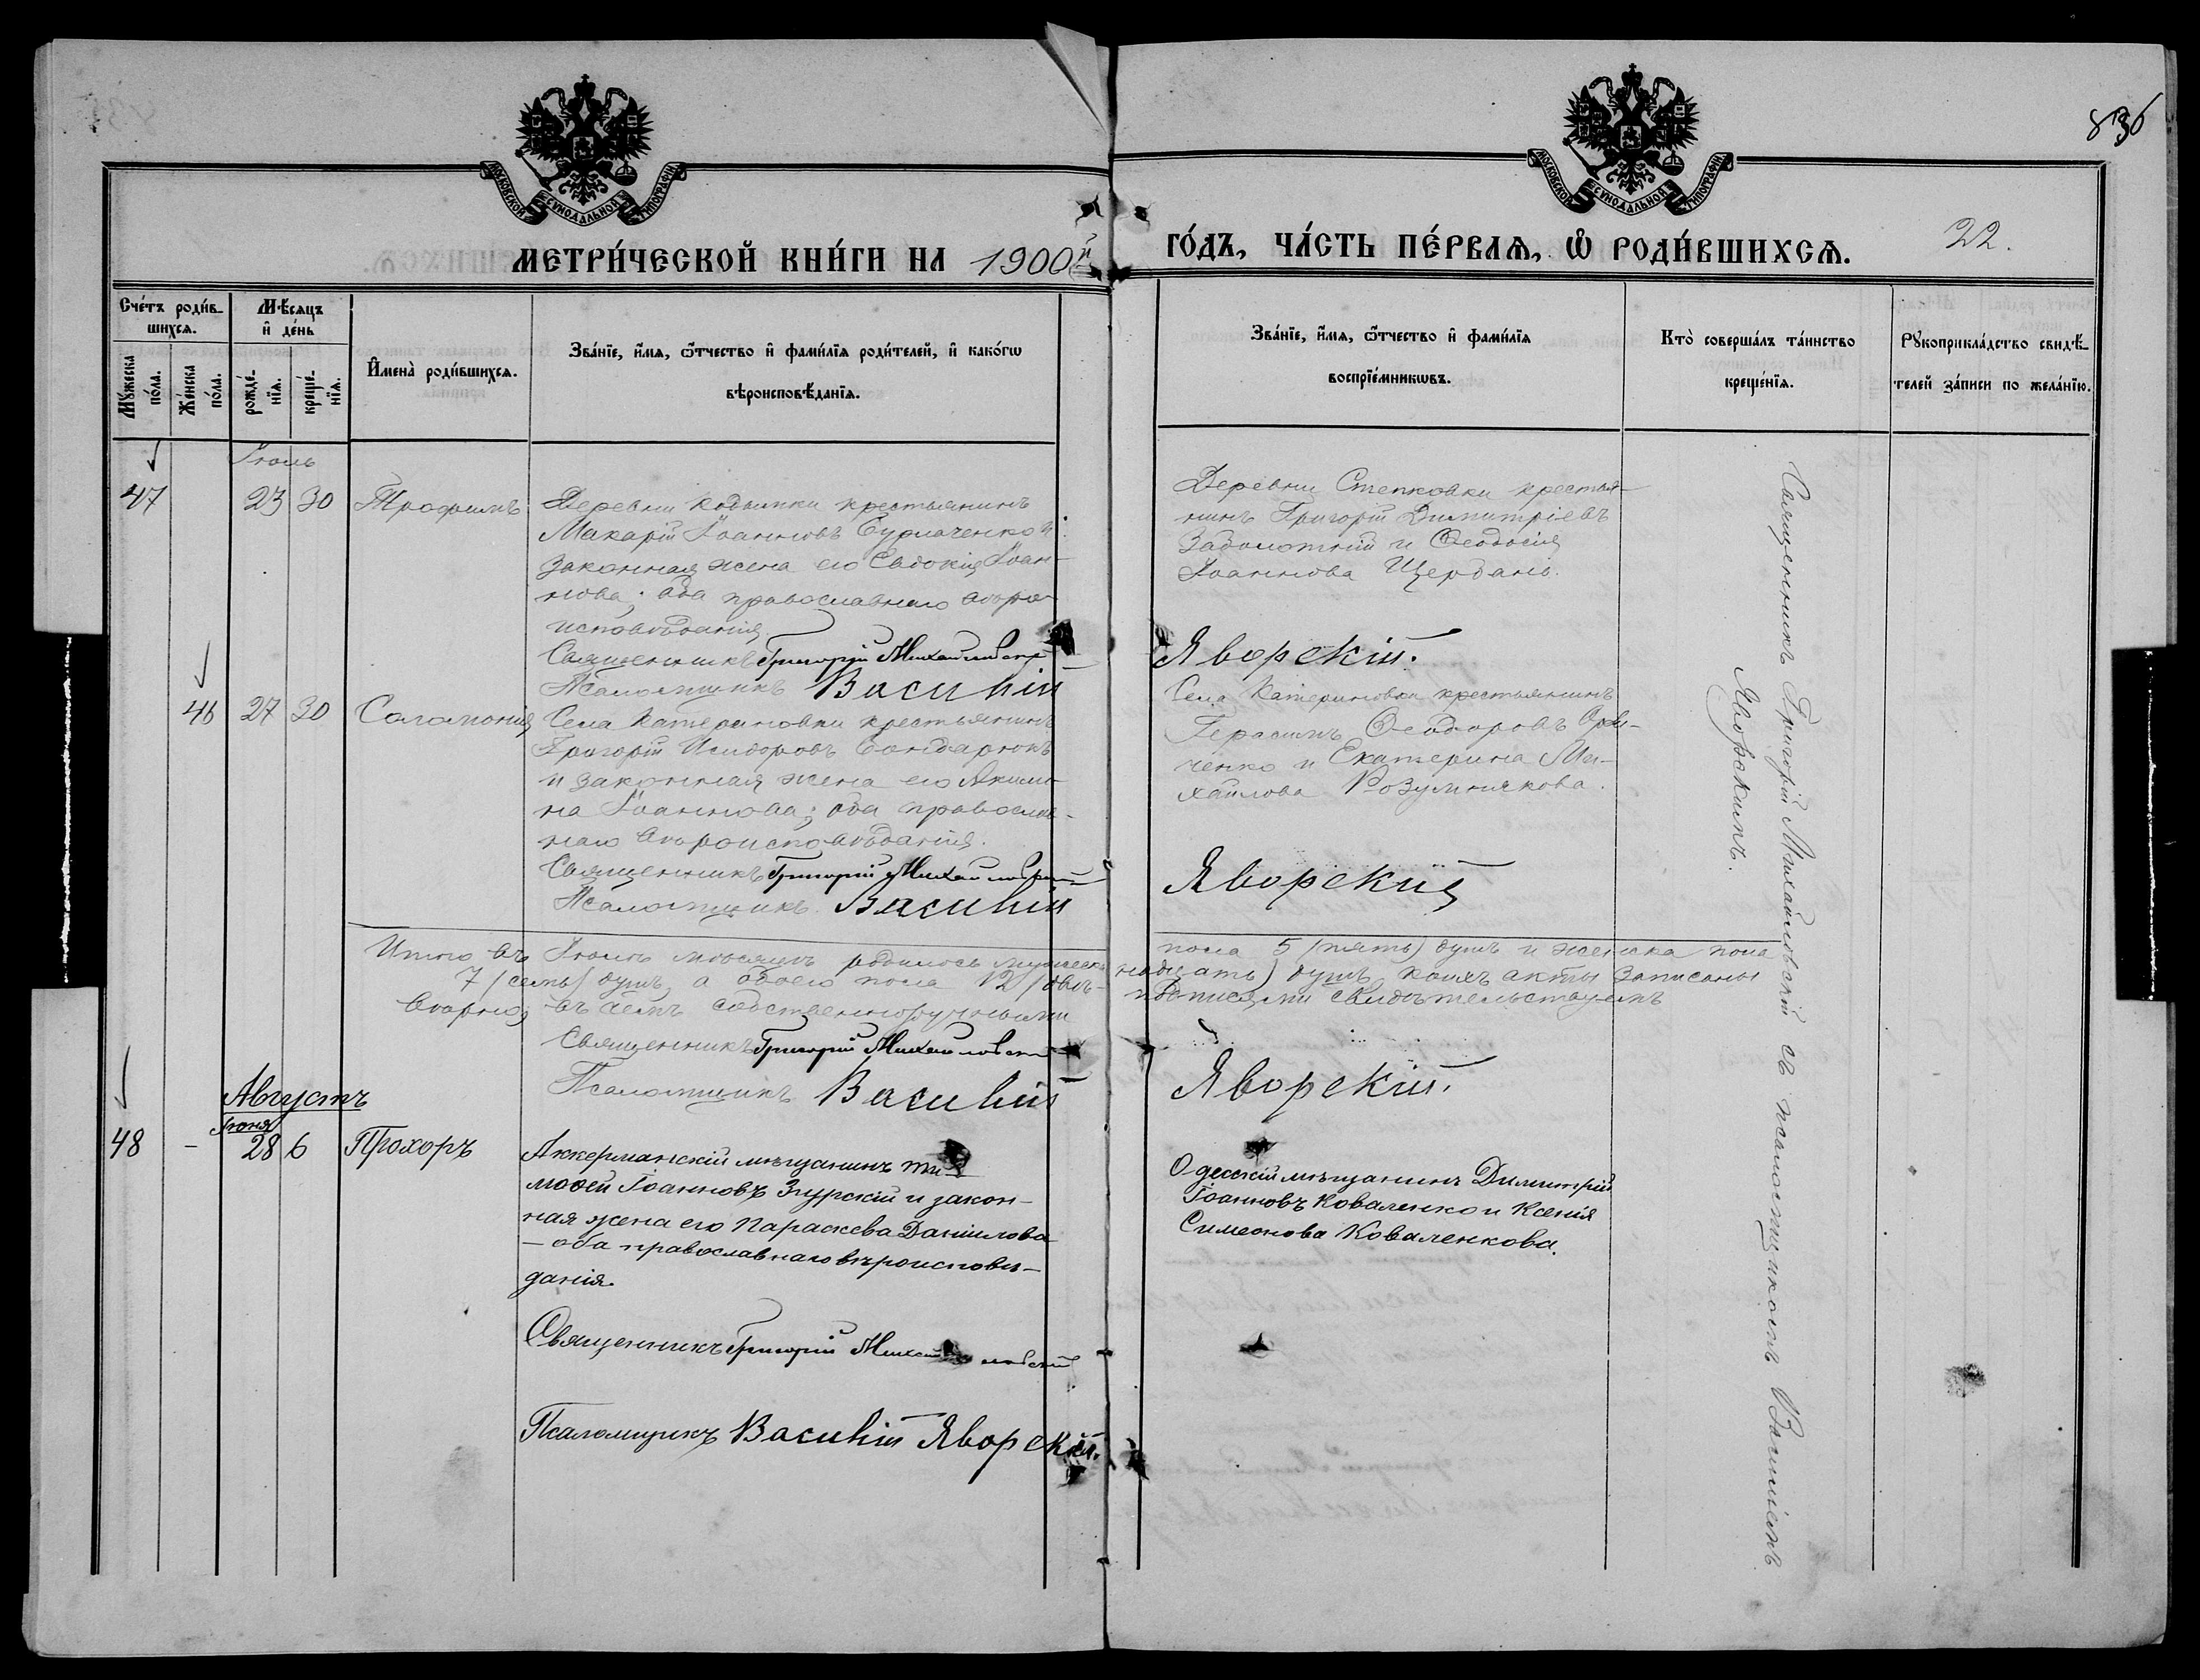 836
МОСКОВСКОЙ СѴНОДАЛЬНОЙ ТИПОГРАФІИ
МОСКОВСКОЙ СѴНОДАЛЬНОЙ ТИПОГРАФІИ
МЕТРИ́ЧЕСКОЙ КНИ́ГИ НА 1900й ГО́ДЪ, ЧА́СТЬ ПЕ́РВАЯ, Ѡ РОДИ́ВШИХСЯ. 22.
Сче́тъ роди́в-
шихся.
Мѣ́сяцъ
и҆ де́нь
Мꙋ́жеска по́ла.
Же́нска по́ла.
рожде́-нїя.
креще́-нїя.
И҆мена̀ роди́вшихся.
Зва́нїе, и҆́мя, ѻ҆́тчество и҆ фами́лїя роди́телей, и҆ како́гѡ
вѣроисповѣ́данїя.
Зва́нїе, и҆́мя, ѻ҆́тчество и҆ фами́лїя
воспрїе́мникѡвъ.
Кто̀ соверша́лъ та́инство
креще́нїя.
Рꙋкоприкла́дство свидѣ́-
телей за́писи по жела́нїю.
Іюль
47 23 30 Трофимъ
Деревни Кодымки крестьянинъ
Макарій Іоанновъ Бурлаченко и
законная жена его Евдокія Іоан-
нова; оба православнаго вѣро-
исповѣданія.
Священникъ Григорій Михайловскій
Псаломщикъ Василій Яворскій.
Деревни Степковки крестья-
нинъ Григорій Димитріевъ
Заболотній и Ѳеодосія
Іоаннова Щердань.
46 27 30 Соломонія
Села Катериновки крестьянинъ
Григорій Исидоровъ Бондарюкъ
и законная жена его Акили-
на Іоаннова; оба православ-
наго вѣроисповѣданія.
Священникъ Григорій Михайловскій
Псаломщикъ Василій Яворскій
Села Катериновки крестьянинъ
Герасимъ Ѳеодоровъ
и Екатерина Ми-
хайлова Розумнякова.
Итого въ Іюлѣ мѣсяцѣ родилось мужеска пола 5 (пять) душъ и женска пола
7 (семь) душъ, а обоего пола 12 (двѣ-надцать) душъ, коихъ акты записаны
вѣрно, въ чемъ собственноручными подписями свидѣтельствуемъ
Священникъ Григорій Михайловскій
Псаломщикъ Василій Яворскій.
Августъ
Іюня
48 - 28 6 Прохоръ
Аккерманскій мѣщанинъ Ти-
моѳей Іоанновъ Згурскій и закон-
ная жена его Параскева Даніилова
— оба православнаго вѣроиспове-
данія.
Священникъ Григорій Михайловскій
Псаломщикъ Василій Яворскій.
Одесскій мѣщанинъ Димитрій
Іоанновъ Коваленко и Ксенія
Симеонова Коваленкова.
Священникъ Григорій Михайловскій съ псаломщикомъ Василіемъ
Яворскимъ.